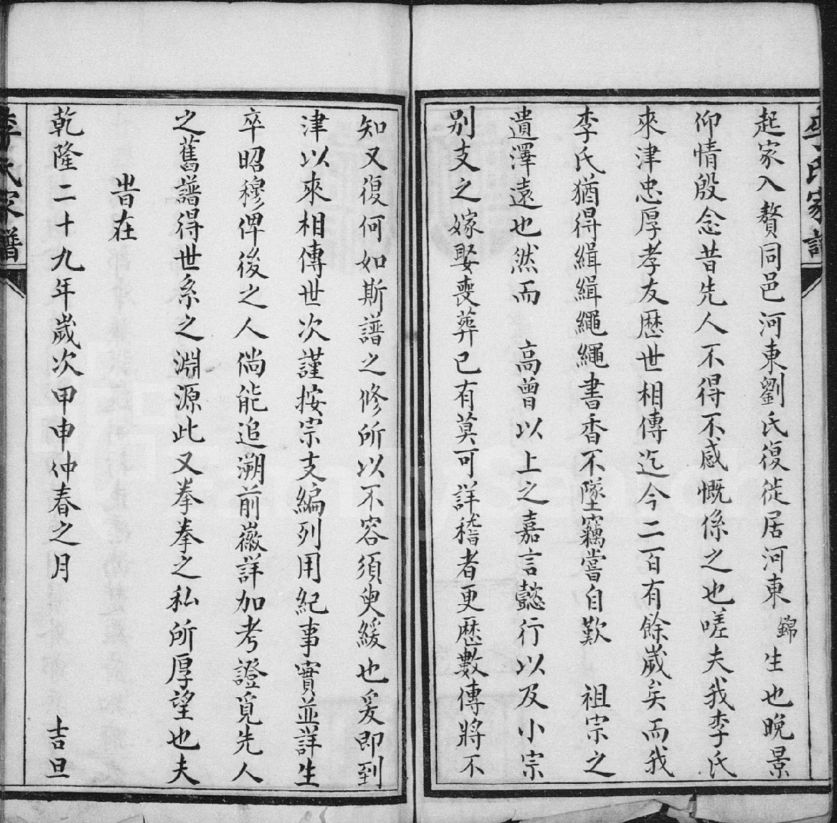 起家入贅同邑河東劉氏復徙居河東 錦 生也晚景
仰情殷念昔先人不得不感慨係之也嗟夫我李氏
來津忠厚孝友歷世相傳迄今二百有餘歲矣而我
李氏猶得緝緝繩繩書香不墜竊嘗自歎 祖宗之
遺澤遠也然而 高曾以上之嘉言懿行以及小宗
別支之嫁娶喪葬已有莫可詳稽者更歷數傳將不
知又復何如斯譜之修所以不容須臾緩也爰即到
津以來相傳世次謹按宗支編列用紀事實並詳生
卒昭穆俾後之人倘能追溯前徽詳加考證覓先人
之舊譜得世系之淵源此又拳拳之私所厚望也夫
旹在
乾隆二十九年歲次甲申仲春之月 吉旦
李氏家譜
李氏家譜